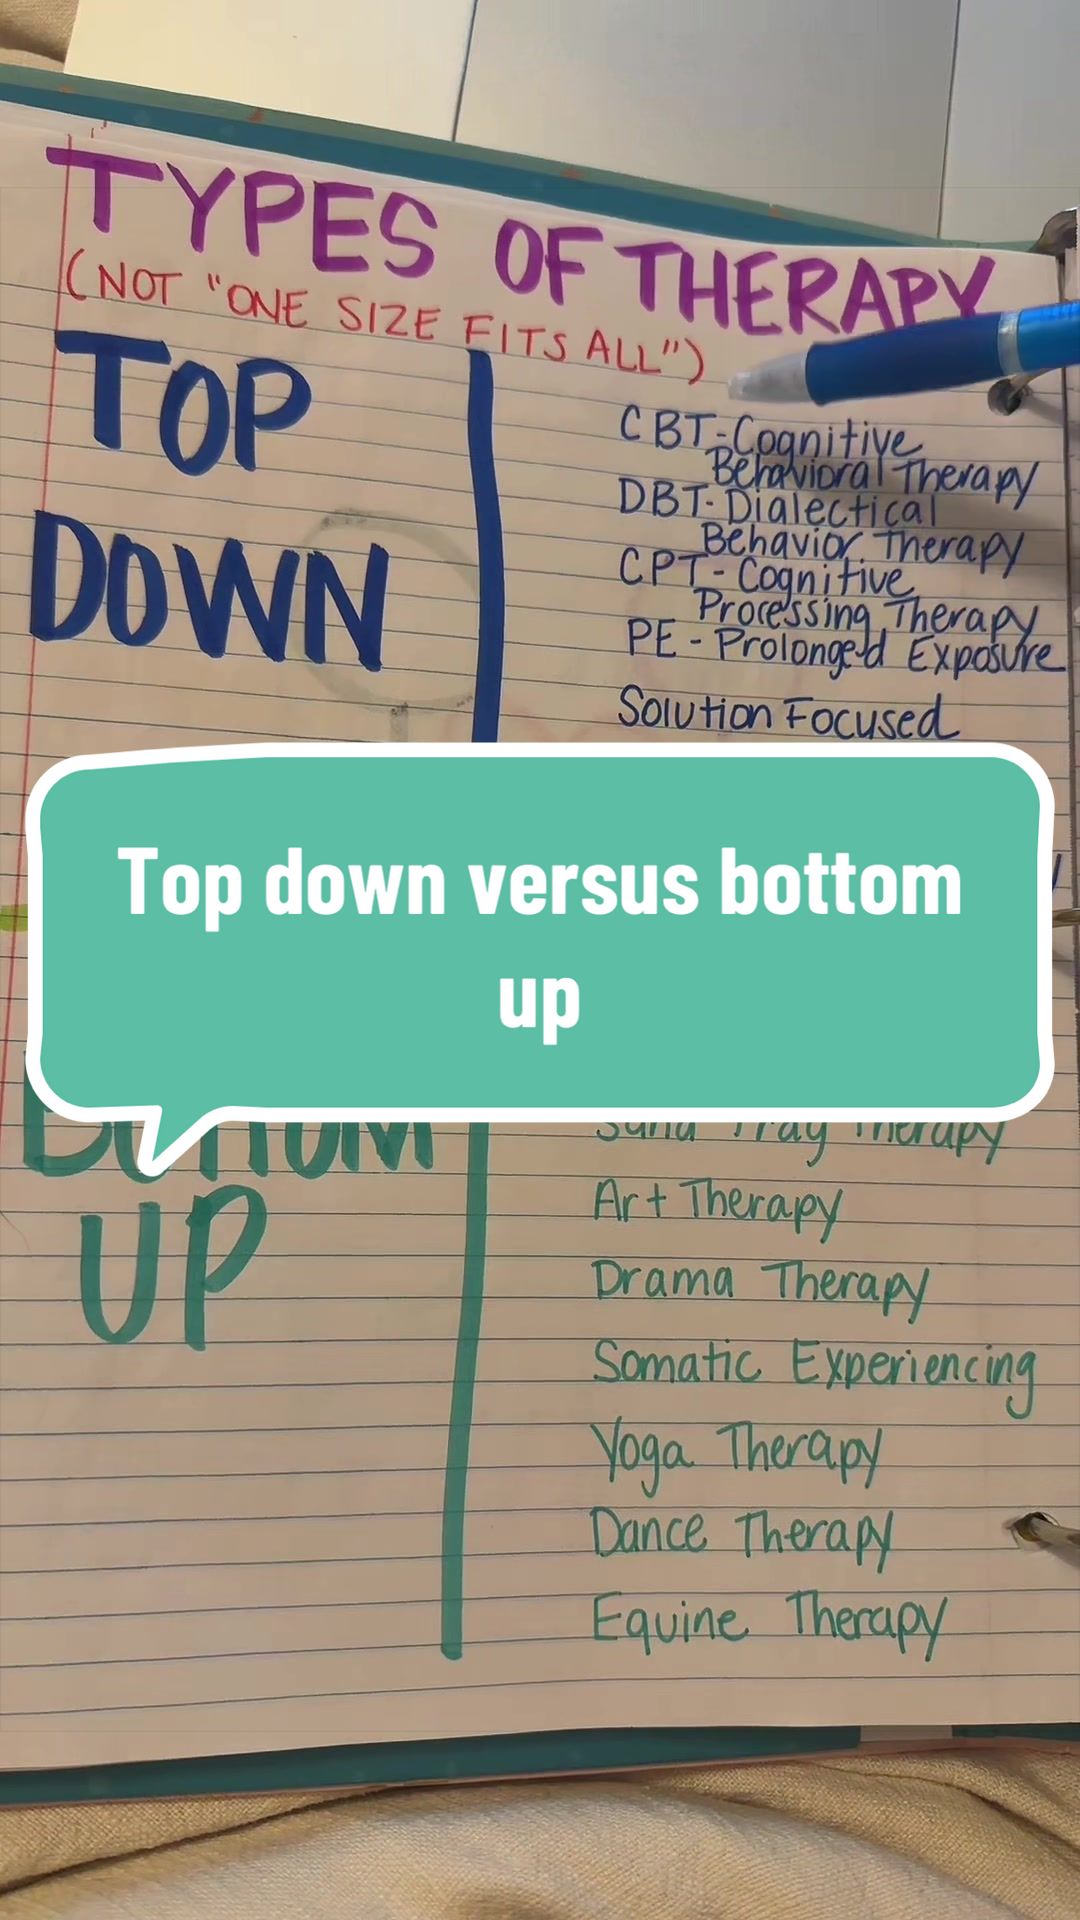 TYPES OF THERAPY
(NOT "ONE SIZE FITS ALL")
TOP
DOWN
CBT-Cognitive
Behavioral Therapy
DBT-Dialectical
Behavior Therapy
CPT-Cognitive
Processing Therapy
PE-Prolonged Exposure
Solution Focused
Top down versus bottom
up
BOTTOM
UP
Sand Tray Therapy
Art Therapy
Drama Therapy
Somatic Experiencing
Yoga Therapy
Dance Therapy
Equine Therapy